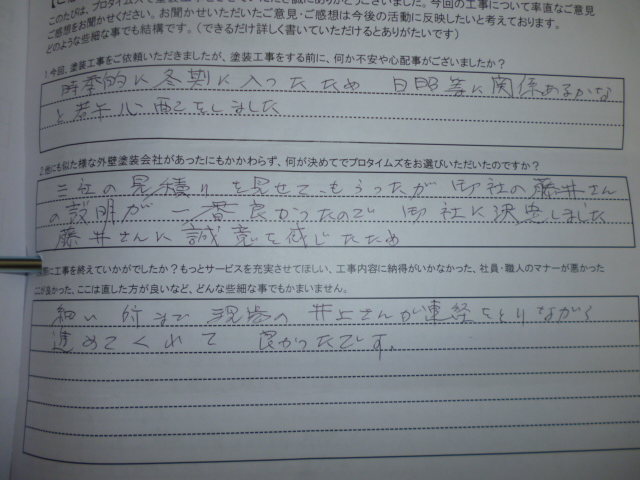 このたびは、プロタイムズで塗装工事をさせていただき誠にありがとうございました。今回の工事について率直なご意見
ご感想をお聞かせください。お聞かせいただいたご意見・ご感想は今後の活動に反映したいと考えております。
どのような些細な事でも結構です。（できるだけ詳しく書いていただけるとありがたいです）
1.今回、塗装工事をご依頼いただきましたが、塗装工事をする前に、何か不安や心配事がございましたか？
時季的に冬期に入ったため 日照等に関係あるかな
と若干心配をしました
2.他にも似た様な外壁塗装会社があったにもかかわらず、何が決めてでプロタイムズをお選びいただいたのですか？
三社の見積りを見せてもらったが 御社の藤井さん
の説明が 一番良かったので 御社に決定しました
藤井さんに誠意を感じたため
際に工事を終えていかがでしたか？もっとサービスを充実させてほしい、工事内容に納得がいかなかった、社員・職人のマナーが悪かった
こが良かった、ここは直した方が良いなど、どんな些細な事でもかまいません。
細い所まで 現場の井上さんが連絡をとりながら
進めてくれて 良かったです。